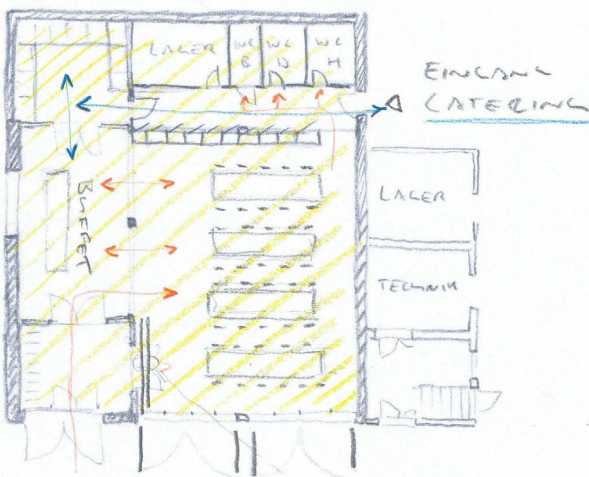 LAGER
WC
B
WC
D
WC
H
EINGANG
CATERING
BUFFET
LAGER
TECHNIK